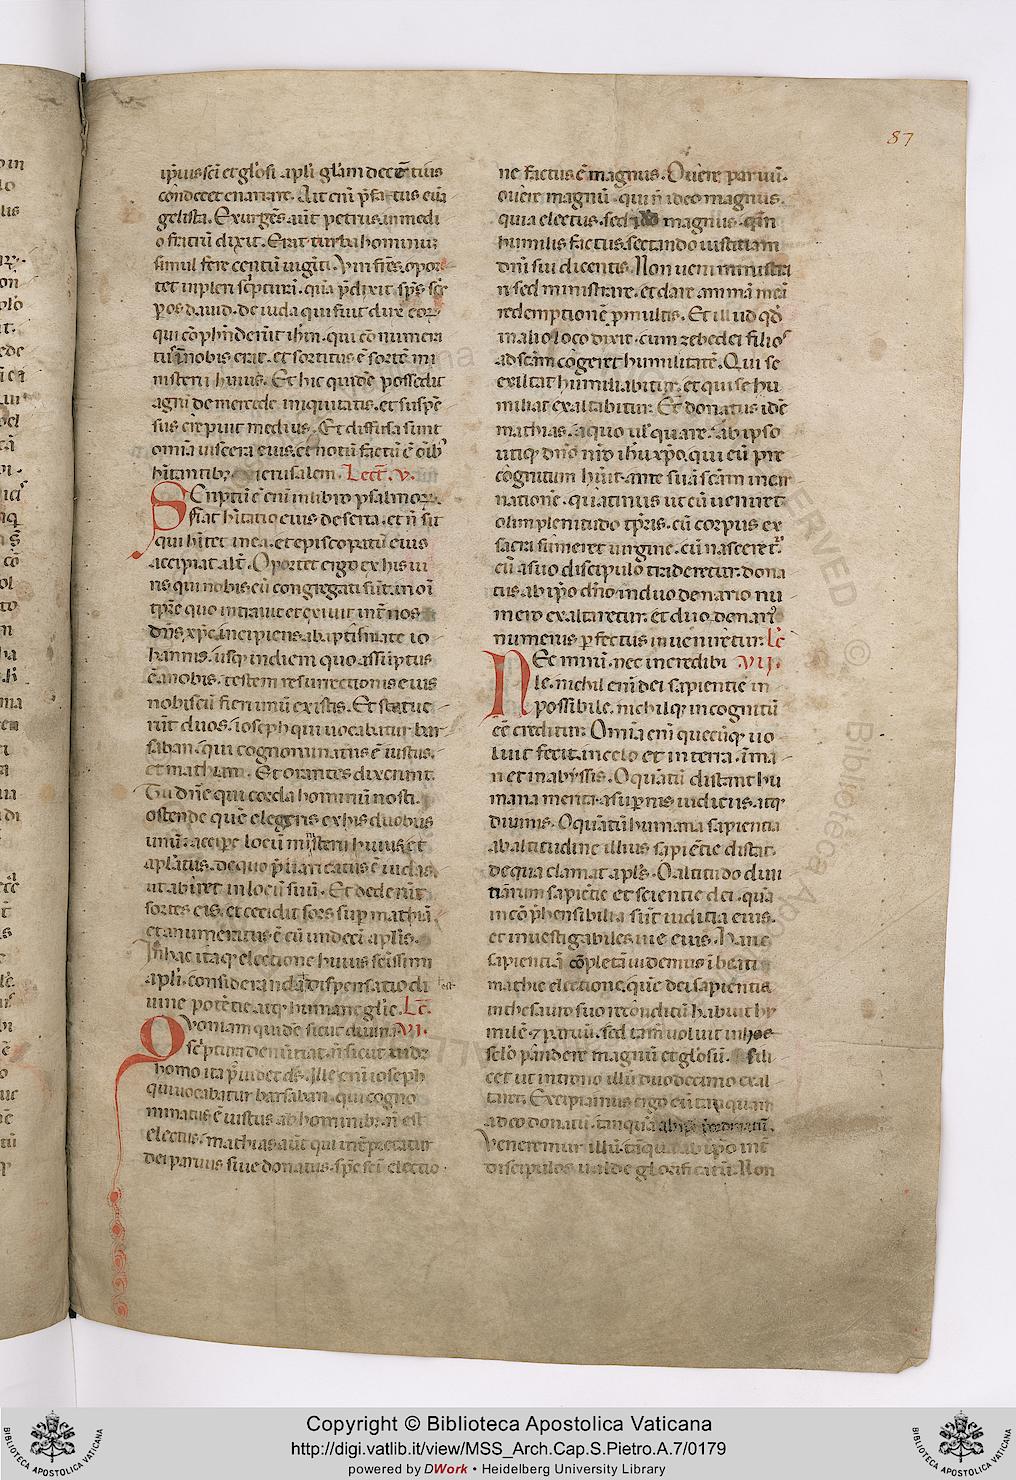 87
ip̄ius sc̄i et gl̓osi apl̓i gl̓am decētius
condecet enarrare. Ait enī p̄fatus euā
gelista. Exurgēs aūt petrus in medi
o fratrū dixit. Erat turba hominuꝫ
simul fere centū uigīti. Viri frēs. opor
tet inpleri sc̓pturā. quā p̄dixit sp̄s sc̄s
ꝑ os dauid. de iuda qui fuit dux eoꝝ
qui cōp̄hnderūt ih̄m. qui cōnumera
tus ī nobis erat. et sortitus ē sortē mi
nisterii huius. Et hic quidē possedit
agrū de mercede iniquitatis. et suspē
sus crepuit medius. Et diffusa sunt
omīa uiscera eius. et notū factū ē oīb'
hītantibꝫ ierusalem. Lect̄. v.
Scriptū ē enī in libro psalmoꝝ.
Fiat hītatio eius deserta. et n̄ sit
qui hītet in ea. et episcopatū eius
accipiat alt̓. Oportet ergo ex his ui
ris qui nobiscū congregati sūt in oī
tp̄re quo intrauit et exiuit int̓ nos
dn̄s xp̄c. incipiens a baptismate io
hannis. usqꝫ in diem quo assūptus
ē a nobis. testem resurrectionis eius
nobiscū fieri unū ex istis. Et statue
rūt duos. ioseph qui uocabatur bar
saban. qui cognominatus ē iustus.
et mathiam. Et orantes dixerunt.
Tu dn̄e qui corda hominū nosti.
ostende quē elegeris ex his duobus
unū. accipe locū mīsterii huius et
apl̓atus. de quo p̄uaricatus ē iudas.
ut abiret in locū suū. Et dederūt
sortes eis. et cecidit sors suꝑ mathiā.
et annumeratus ē cū undecī apl̓is.
In hac itaqꝫ electione huius sc̄issimi
apl̓i. consideranda dispensatio di
uine potētie atqꝫ humane gl̓ie. Lc̄.
Quoniam quidē sicut diuina VI.
sc̓ptura denūtiat. n̄ sicut uidꝫ
homo ita p̄uidet dꝰ. Ille enī ioseph
qui uocabatur barsaban. qui cogno
minatus ē iustus ab hominibꝫ. n̄ est
electus. mathias aūt qui int̓pretatur
dei paruus siue donatus. sp̄c sc̄i electio
ne factus ē magnus. O uere paruū.
o uere magnū. qui n̄ ideo magnus.
quia electus. sed magnus. qm̄
humilis factus. sectando iustitiam
dn̄i sui dicentis. Non ueni ministra
ri sed ministrare. et dare animā meā
redemptionē ꝓ multis. Et illud qd̓
in alio loco dixit. cum zebedei filios
ad sc̄am cogeret humilitatē. Qui se
exaltat humiliabitur. et qui se hu
miliat exaltabitur. Et donatus idē
mathias. a quo ul̓ quare. ab ipso
utiqꝫ dn̄o nr̄o ih̄u xp̄o. qui eū pre
cōgnitum hūit. ante suā sc̄am incar
nationē. quatinus ut cū ueniret
olim plenitudo tp̄ris. cū corpus ex
sacra sūmeret uirgine. cū nasceret̓.
cū a suo discipulo traderetur. dona
tus ab ip̄o dn̄o. in duodenario nu
mero exaltaretur. et duodenarꝰ
numerus ꝑfectus inueniretur. Lc̄
Nec mirū. nec incredibi VII.
le. nichil enī dei sapientie in
possibile. nichilqꝫ incognitū
eē creditur. Omīa enī quecūqꝫ uo
luit fecit. in celo et in terra. ī ma
ri et in abyssis. O quātū distant hu
mana merita. a suꝑnis iudiciis. atqꝫ
diuinis. O quātū humana sapientia
ab altitudine illius sapiētie distat.
de qua clamat apl̓s. O altitudo diui
tiarum sapiētie et scientie dei. quā
incōp̄hensibilia sūt iuditia eius.
et inuestigabiles uie eius. Hanc
sapientiā cōpletā uidemus ī beati
mathie electione. quē dei sapientia
in thesauro suo recōnditū habuit hu
milē et paruū. sed tam̄ uoluit in hoc
sc̄lo pandere magnū et gl̓osū.
cet ut in trono illū duodecimo exal
taret. Excipiamus ergo eū tanquam
a deo donatū. tanquā
Veneremur illū. tāquā ab ip̄o int̓
discipulos ualde glorificatū. Non
Copyright © Biblioteca Apostolica Vaticana
http://digi.vatlib.it/view/MSS_Arch.Cap.S.Pietro.A.7/0179
powered by DWork • Heidelberg University Library